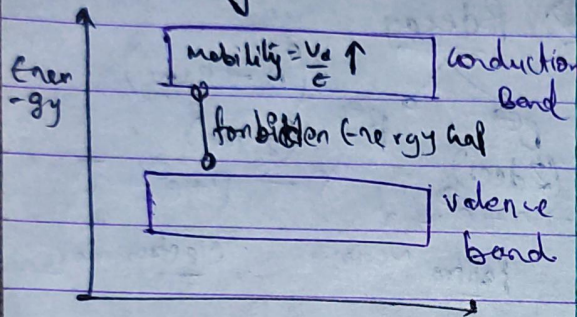 Ener
-gy
mobility = Vd/E ↑
conduction
Band
forbidden Energy Gap
valence
band